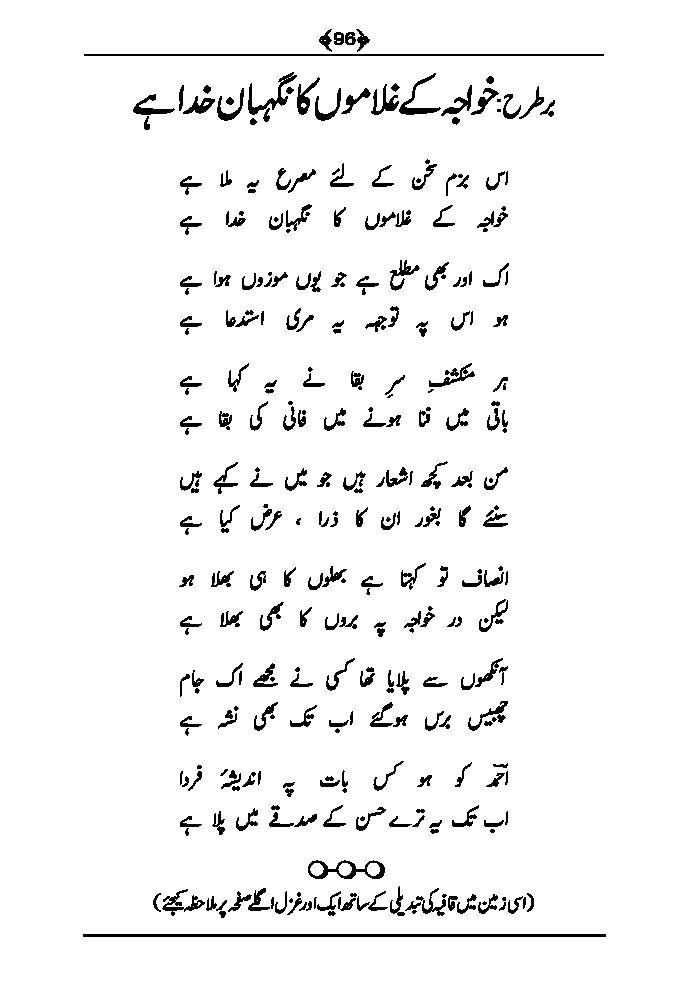 ﴿96﴾
برطرح: خواجہ کے غلاموں کا نگہبان خدا ہے
اس بزم سخن کے لئے مصرع یہ ملا ہے
خواجہ کے غلاموں کا نگہبان خدا ہے
اک اور بھی مطلع ہے جو یوں موزوں ہوا ہے
ہو اس پہ توجہہ یہ مری استدعا ہے
ہر منکشفِ سرِ بقا نے یہ کہا ہے
باقی میں فنا ہونے میں فانی کی بقا ہے
من بعد کچھ اشعار ہیں جو میں نے کہے ہیں
سنئے گا بغور ان کا ذرا ، عرض کیا ہے
انصاف تو کہتا ہے بھلوں کا ہی بھلا ہو
لیکن در خواجہ پہ بروں کا بھی بھلا ہے
آنکھوں سے پلایا تھا کسی نے مجھے اک جام
چھبیس برس ہوگئے اب تک بھی نشہ ہے
احمدؔ کو ہو کس بات پہ اندیشۂ فردا
اب تک یہ ترے حسن کے صدقے میں پلا ہے
(اسی زمین میں قافیہ کی تبدیلی کے ساتھ ایک اور غزل اگلے صفحہ پر ملاحظہ کیجئے)